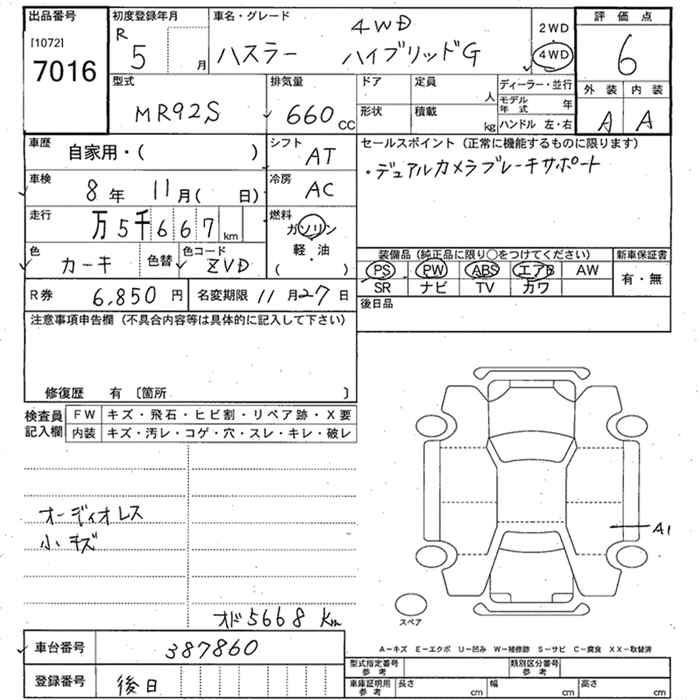 出品番号
[1072]
7016
初度登録年月
R 5 月
車名・グレード
4WD
ハスラー ハイブリッドG
2WD
4WD
評価点
6
外装 内装
A A
型式
MR92S
排気量
660 cc
ドア
定員
人
形状
積載
kg
ディーラー・並行
モデル年式 年
ハンドル 左・右
車歴
自家用・( )
シフト
AT
セールスポイント (正常に機能するものに限ります)
・デュアルカメラブレーキサポート
車検
8年 11月( 日)
冷房
AC
走行
万5千667 km
燃料
ガソリン
軽・油
( )
色
カーキ
色替
色コード
ZVD
装備品 (純正品に限り○をつけてください)
新車保証書
PS PW ABS エアB AW
SR ナビ TV カワ
有・無
R券 6,850 円
名変期限 11月27日
後日品
注意事項申告欄 (不具合内容等は具体的に記入して下さい)
修復歴 有 〔箇所 〕
検査員記入欄
FW キズ・飛石・ヒビ割・リペア跡・X要
内装 キズ・汚レ・コゲ・穴・スレ・キレ・破レ
オーディオレス
小キズ
A1
オド5668 km
スペア
車台番号 387860
A－キズ E－エクボ U－凹み W－補修跡 S－サビ C－腐食 XX－取替済
登録番号 後日
型式指定番号 参考
類別区分番号 参考
車庫証明用 参考
長さ cm
幅 cm
高さ cm